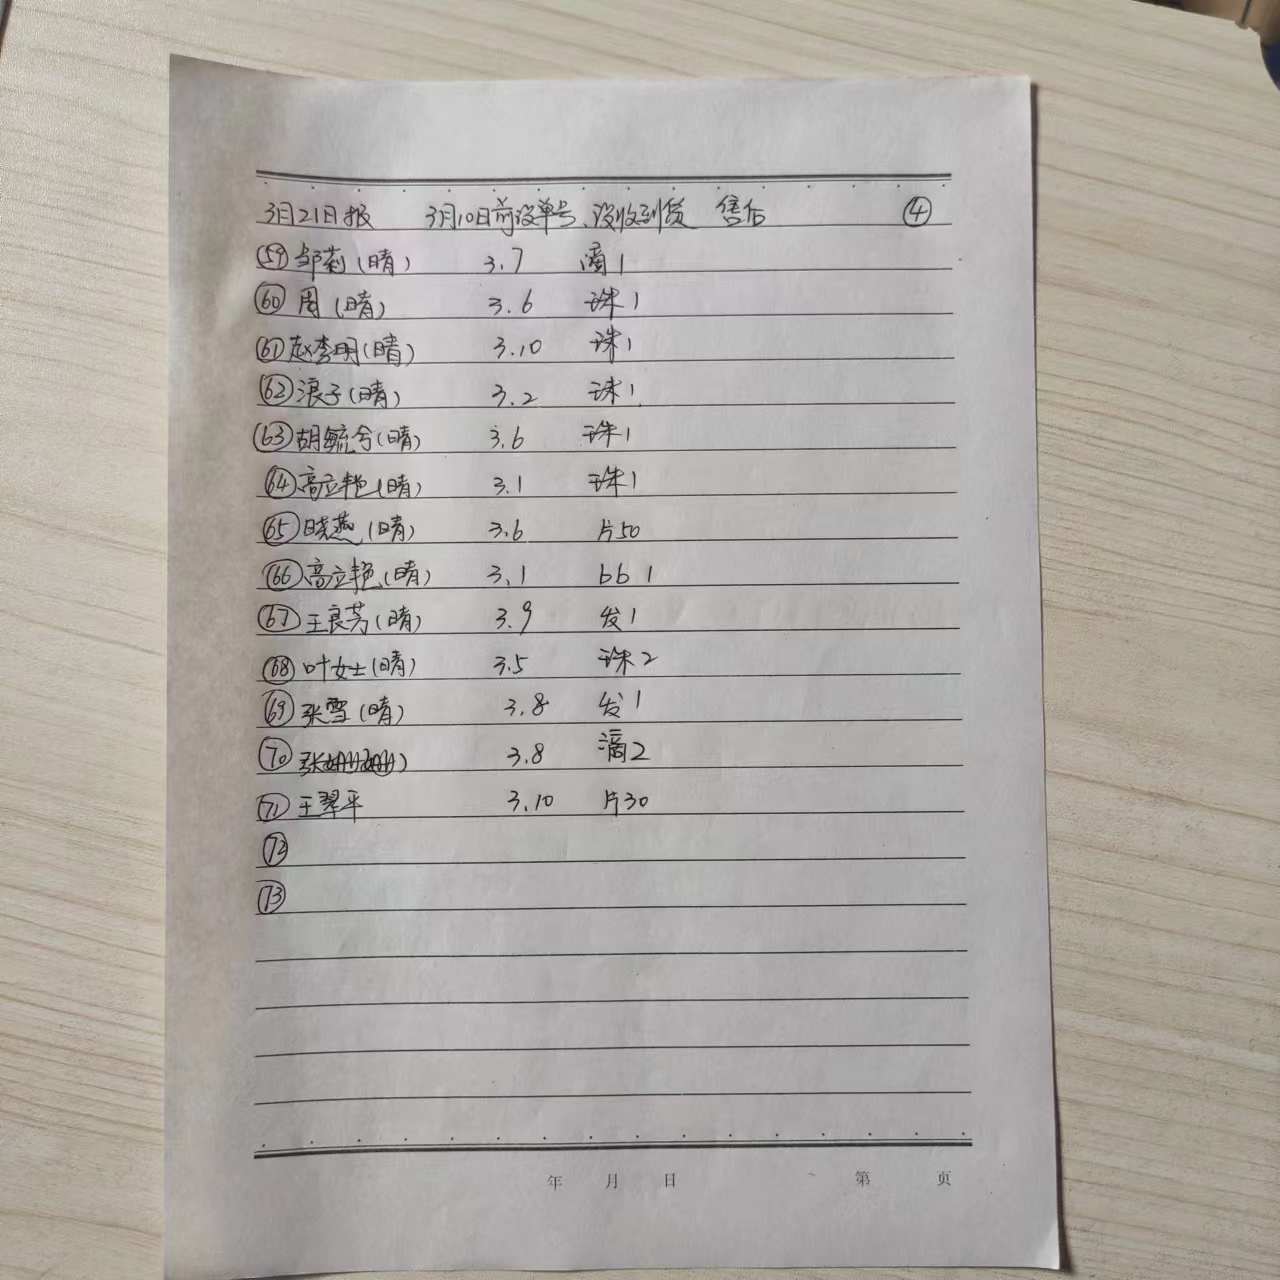 3月21日报 3月10日前没单号、没收到货 售后 ④
59 邹莉(晴) 3.7 滴1
60 周(晴) 3.6 珠1
61 赵李明(晴) 3.10 珠1
62 浪子(晴) 3.2 珠1
63 胡毓兮(晴) 3.6 珠1
64 高立艳(晴) 3.1 珠1
65 晓燕(晴) 3.6 片50
66 高立艳(晴) 3.1 bb 1
67 王良芳(晴) 3.9 发1
68 叶女士(晴) 3.5 珠2
69 张雪(晴) 3.8 发1
70 张姗姗 3.8 滴2
71 王翠平 3.10 片30
72
73
年 月 日 第 页